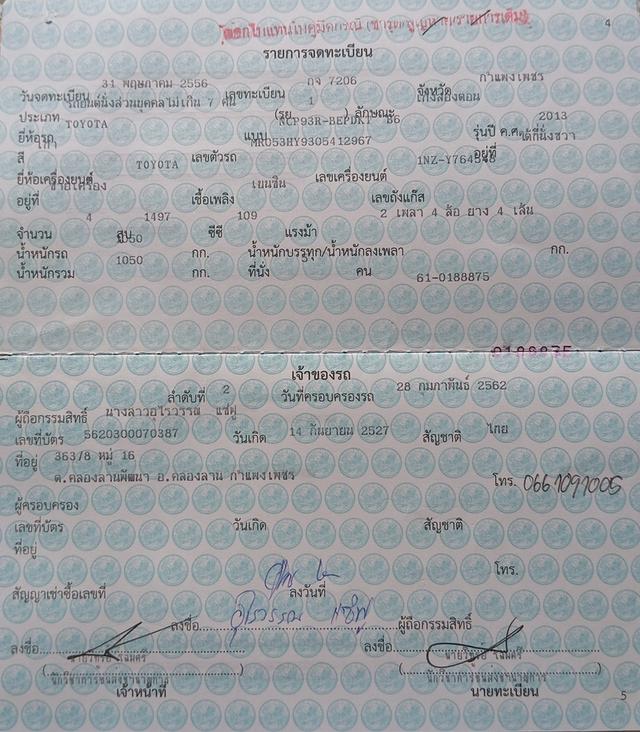 4
รายการจดทะเบียน
วันจดทะเบียน 31 พฤษภาคม 2556 เลขทะเบียน กจ 7206 จังหวัด กำแพงเพชร
ประเภท รถยนต์นั่งส่วนบุคคลไม่เกิน 7 คน (รย. 1 ) ลักษณะ เก๋งสองตอน
ยี่ห้อรถ TOYOTA แบบ รุ่นปี ค.ศ. 2013
สี เทา เลขตัวรถ MR053HY9305412967 อยู่ที่ ใต้ที่นั่งขวา
ยี่ห้อเครื่องยนต์ TOYOTA เลขเครื่องยนต์
อยู่ที่ ข้างเครื่อง เชื้อเพลิง เบนซิน เลขถังแก๊ส
จำนวน 4 สูบ 1497 ซีซี 109 แรงม้า 2 เพลา 4 ล้อ ยาง 4 เส้น
น้ำหนักรถ 1050 กก. น้ำหนักบรรทุก/น้ำหนักลงเพลา กก.
น้ำหนักรวม 1050 กก. ที่นั่ง คน 61-0188875
เจ้าของรถ
ลำดับที่ 2 วันที่ครอบครองรถ 28 กุมภาพันธ์ 2562
ผู้ถือกรรมสิทธิ์ นางสาวอุไรวรรณ แซ่ฟู
เลขที่บัตร 5620300070387 วันเกิด 14 กันยายน 2527 สัญชาติ ไทย
ที่อยู่ 363/8 หมู่ 16
ต.คลองลานพัฒนา อ.คลองลาน กำแพงเพชร โทร. 0661091005
ผู้ครอบครอง
เลขที่บัตร วันเกิด สัญชาติ
ที่อยู่
โทร.
สัญญาเช่าซื้อเลขที่ ลงวันที่
ลงชื่อ อุไรวรรณ แซ่ฟู ผู้ถือกรรมสิทธิ์
ลงชื่อ ลงชื่อ
( ) ( )
นักวิชาการขนส่งชำนาญการ นักวิชาการขนส่งชำนาญการ
เจ้าหน้าที่ นายทะเบียน
5